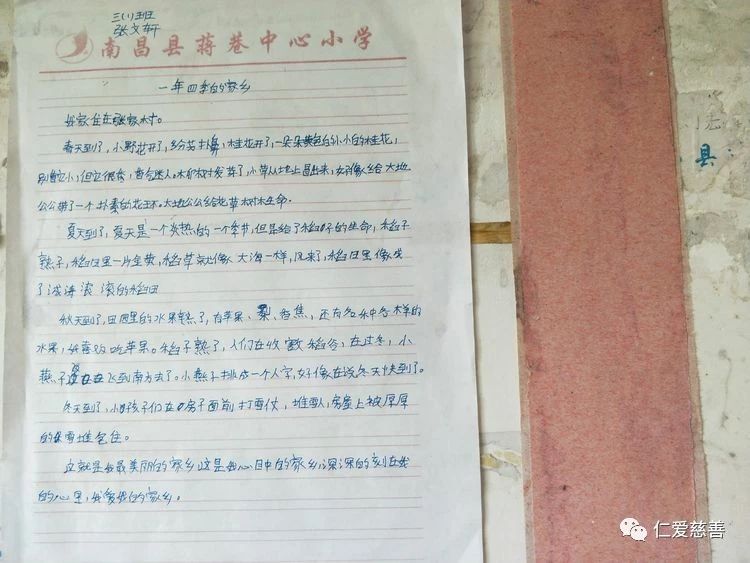 三(1)班
张文轩
南昌县蒋巷中心小学
一年四季的家乡
我家住在张家村。
春天到了,小野花开了,芬芳扑鼻,桂花开了,一朵朵黄色的小小的桂花,
别看它小,但它很香,香气迷人。树木发芽了,小草从地上冒出来,好像给大地
公公带了一个扑素的花环。大地公公给花草树木生命。
夏天到了,夏天是一个炎热的一个季节,但是给了稻子的生命,稻子
熟了,稻田里一片金黄,稻草就像大海一样,风来了,稻田里像成
了波涛滚滚的稻田
秋天到了,田园里的水果熟了,有苹果、梨、香焦,还有各种各样的
水果,我喜欢吃苹果。稻子熟了,人们在收割稻谷,在过冬,小
燕子 飞到南方去了。小燕子排成一个人字,好像在说冬天快到了。
冬天到了,小孩子们在房子面前打雪仗,堆雪人,房屋上被厚厚
的雪堆包住。
这就是我最美丽的家乡这是我心目中的家乡,深深的刻在我
的心里,我爱我的家乡。
县
仁爱慈善